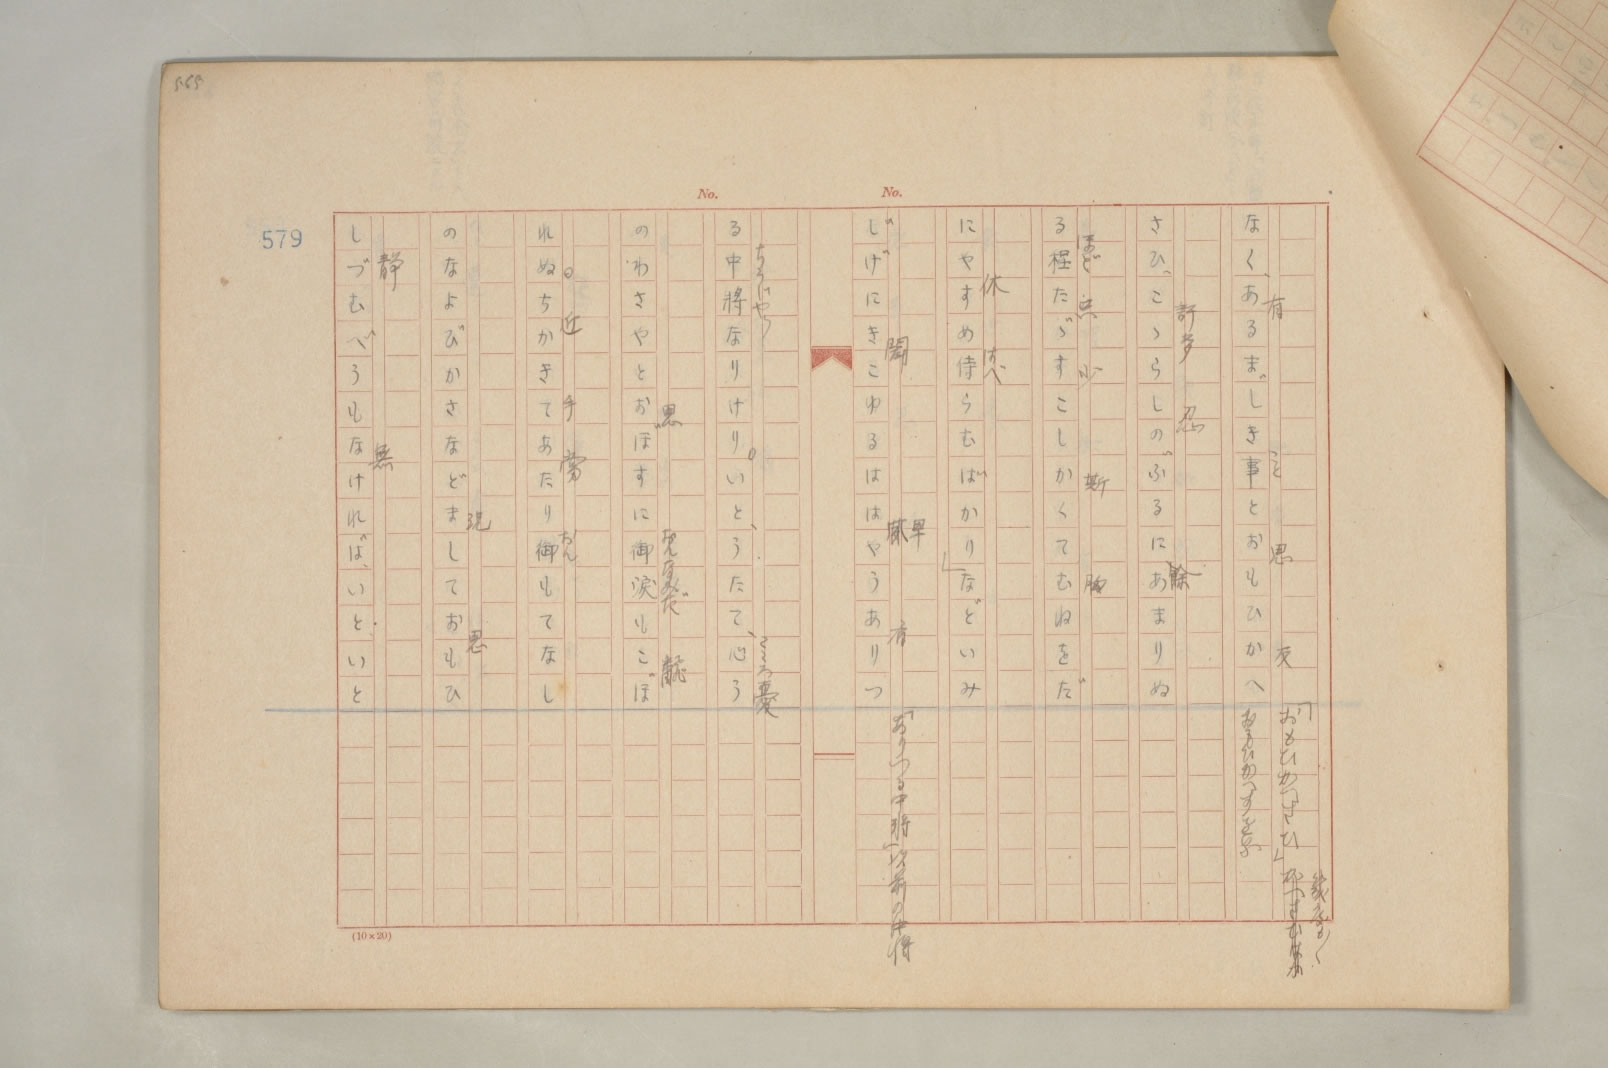 565
579
No.
No.
有 こと 思 交
なく、あるまじき事とおもひかへ
許多 忍 餘
さひ、こゝらしのぶるにあまりぬ
ほど 只 少 斯 胸
る程たゞすこしかくてむねをだ
休 はべ
にやすめ侍らむばかり」などいみ
聞 早 有
じげにきこゆるははやうありつ
「ありつる中将」以前の中将
ちうじやう こゝろ憂
る中將なりけり。いと、うたて、心う
思 おんなみだ
のわさやとおぼすに御涙もこぼ
近 手 當 おん
れぬちかきてあたり御もてなし
況 思
のなよびかさなどましておもひ
静 無
しづむべうもなければ、いといと
(10×20)